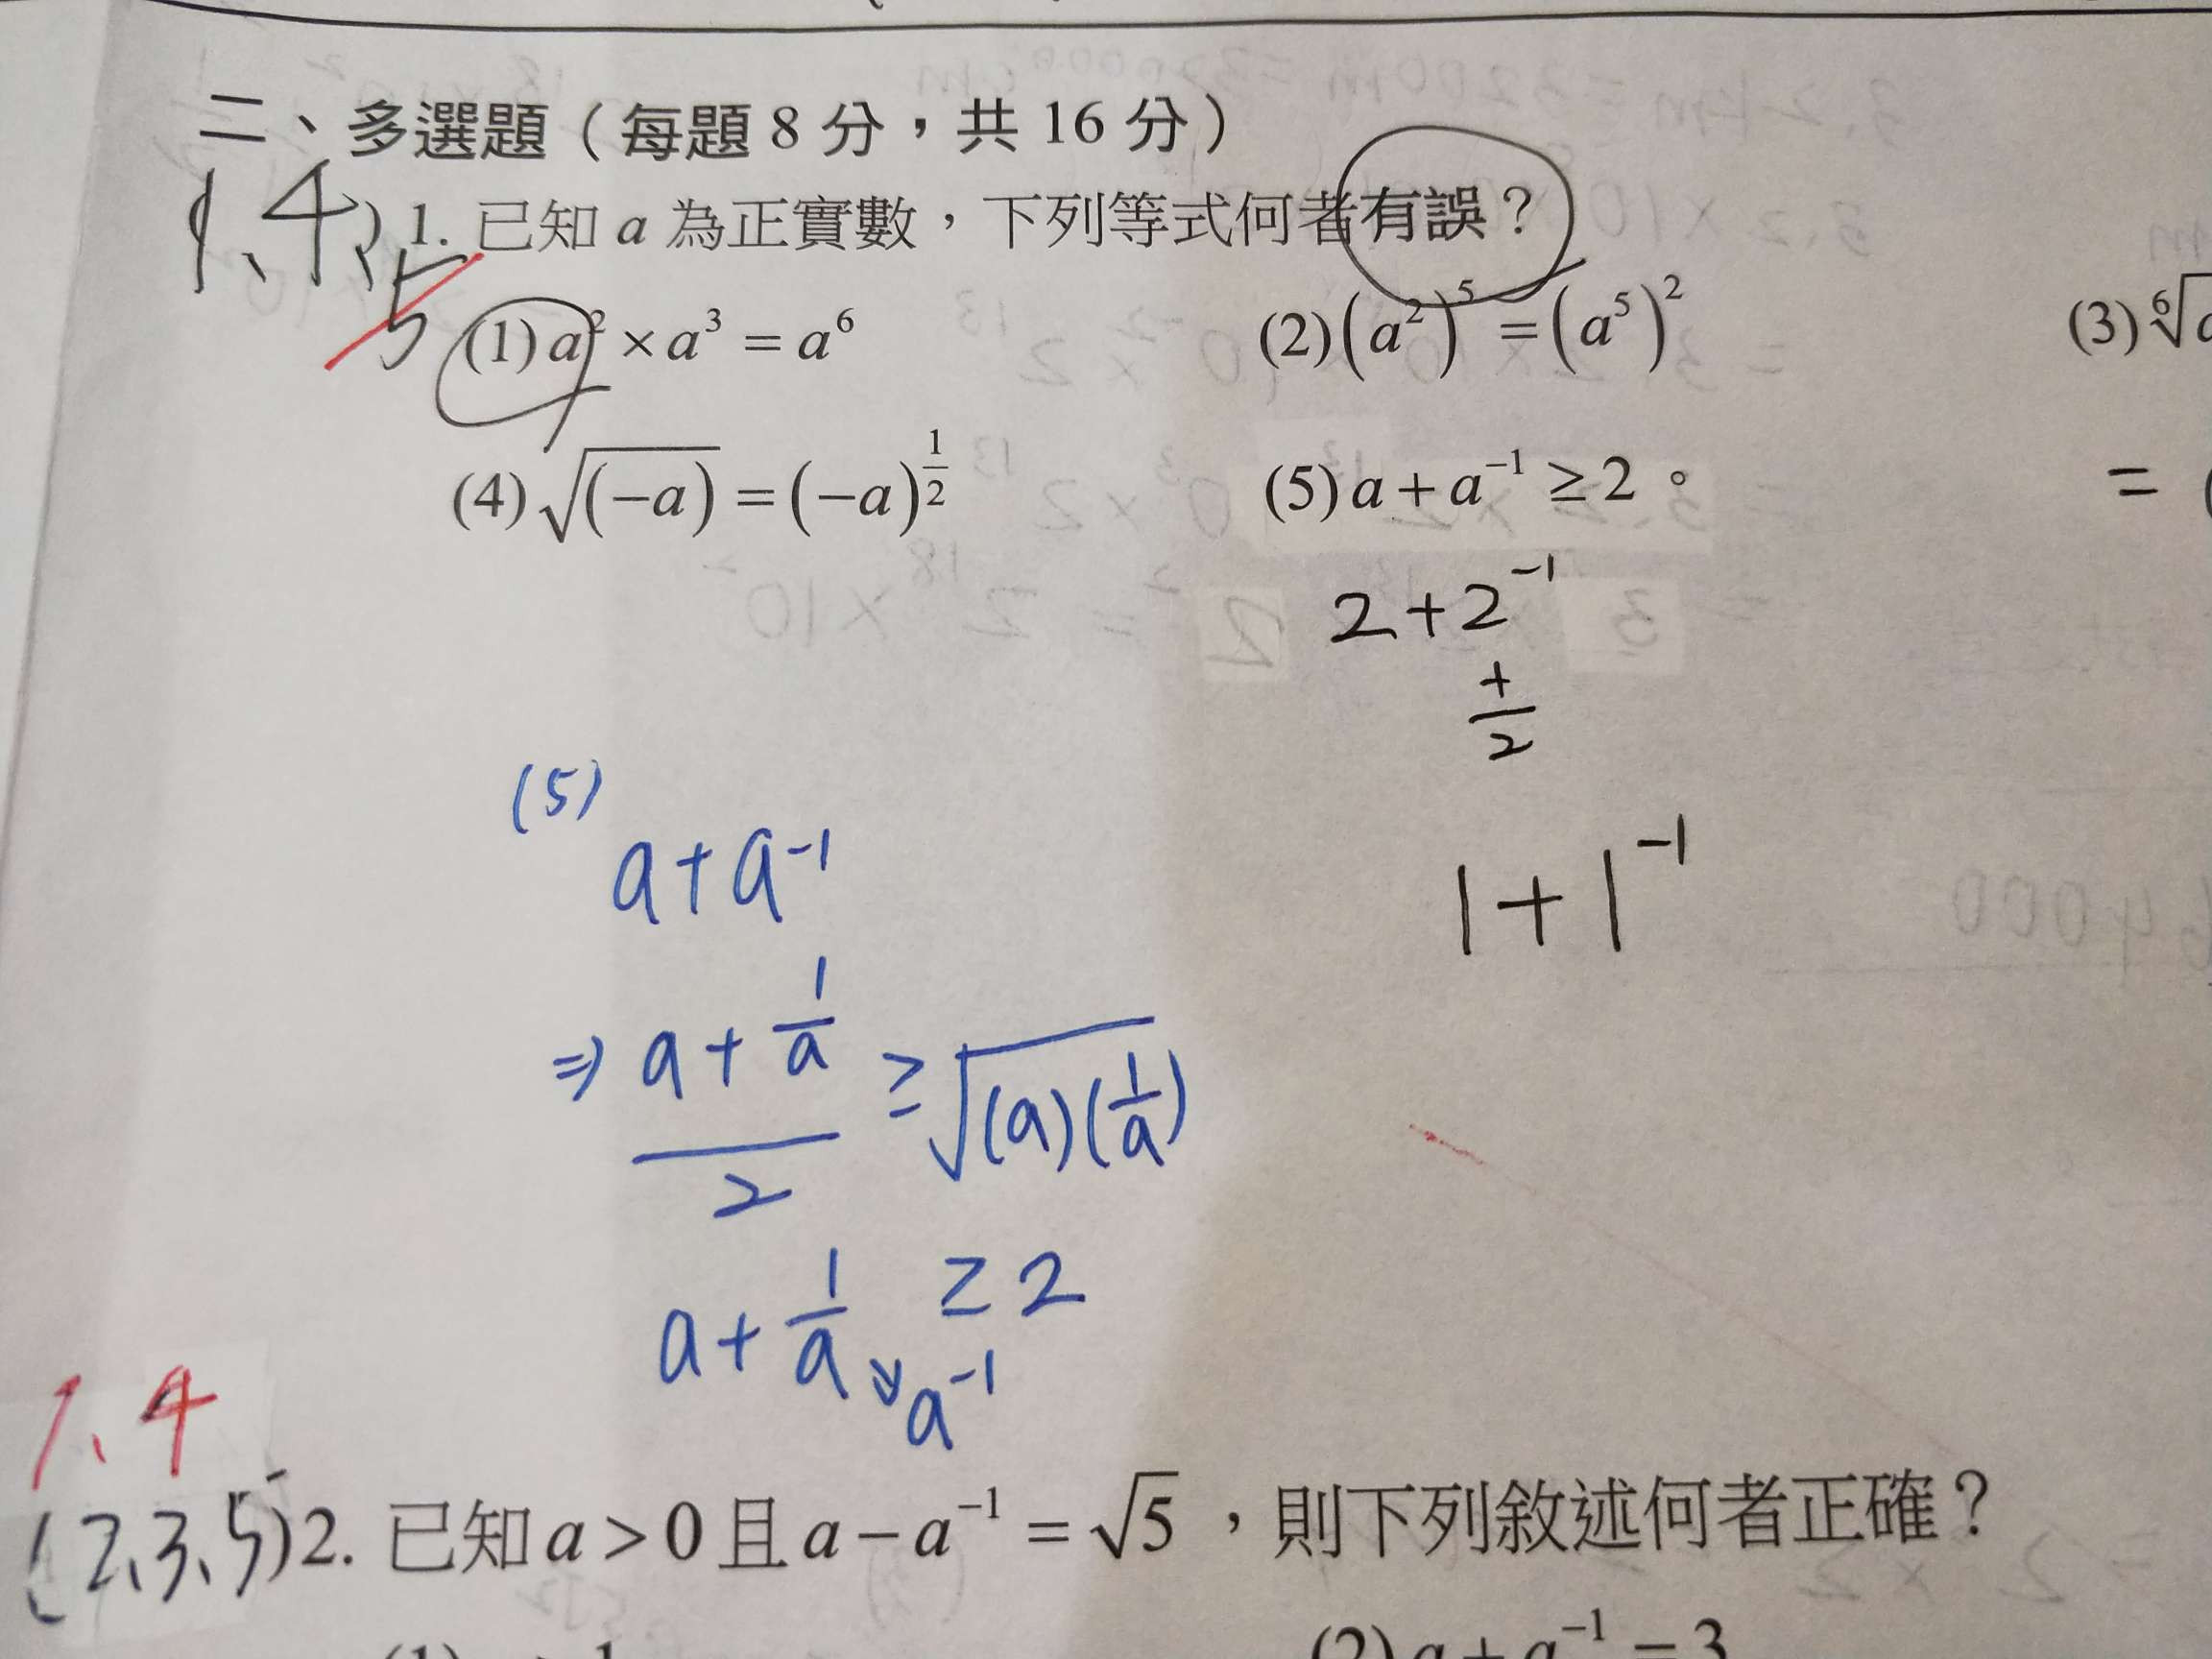 二、多選題（每題 8 分，共 16 分）
(1、4、5) 1. 已知 a 為正實數，下列等式何者有誤？
(1) a² × a³ = a⁶ (2) (a²)⁵ = (a⁵)² (3) ⁶√a
(4) √(−a) = (−a)^(1/2) (5) a + a⁻¹ ≥ 2。 =
2 + 2⁻¹
1/2
(5)
a + a⁻¹
1 + 1⁻¹
⇒ (a + 1/a)/2 ≥ √((a)(1/a))
a + 1/a ≥ 2
a⁻¹
1、4
(2、3、5) 2. 已知 a > 0 且 a − a⁻¹ = √5，則下列敘述何者正確？
(2) a + a⁻¹ = 3